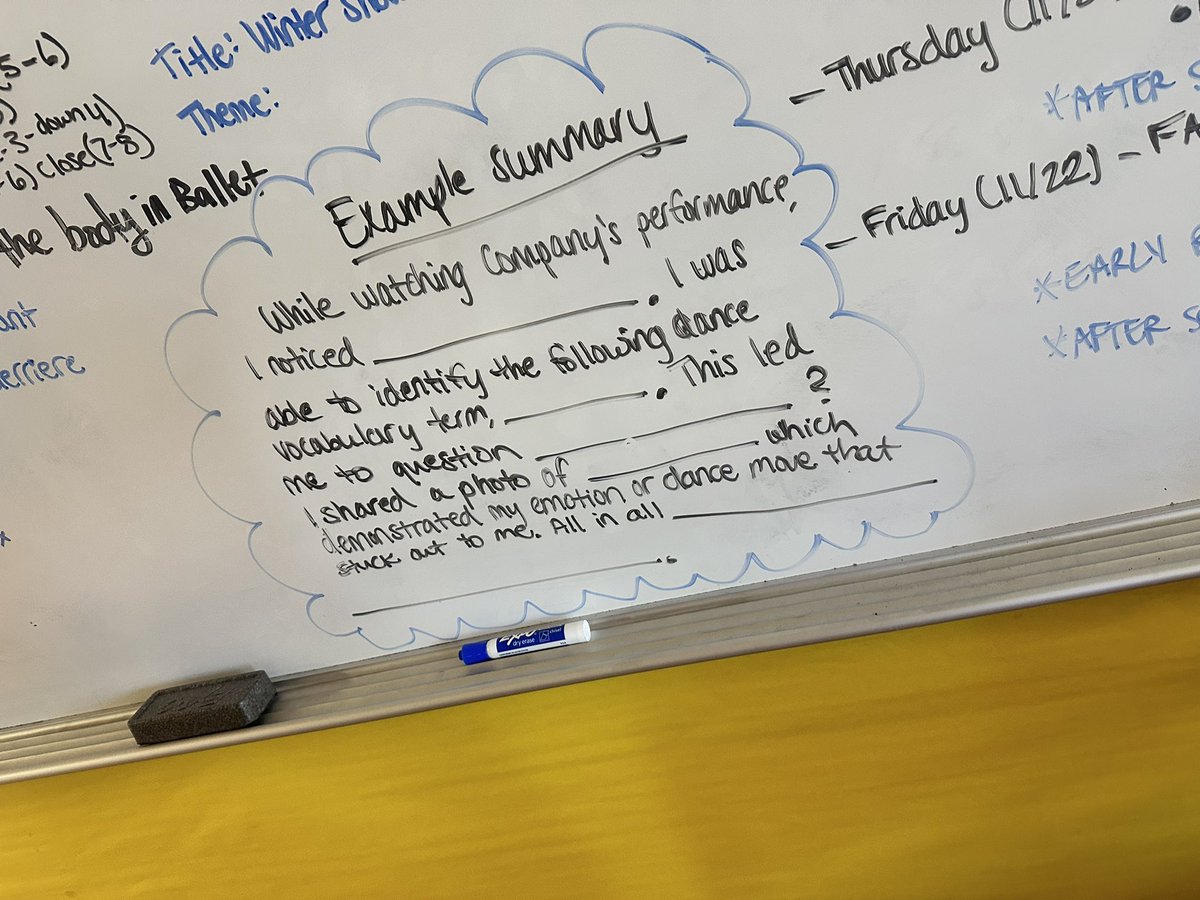 5-6)
3-down 4)
-6) close (7-8)
the body in Ballet
Title: Winter
Theme:
Example Summary
While watching Company's performance,
I noticed ____. I was
able to identify the following dance
vocabulary term, ____. This led
me to question ____?
I shared a photo of ____ which
demonstrated my emotion or dance move that
stuck out to me. All in all ____
____.
- Thursday (11/
*AFTER
- Friday (11/22) - FA
*EARLY
*AFTER
derriere
EXPO
dry erase
chisel